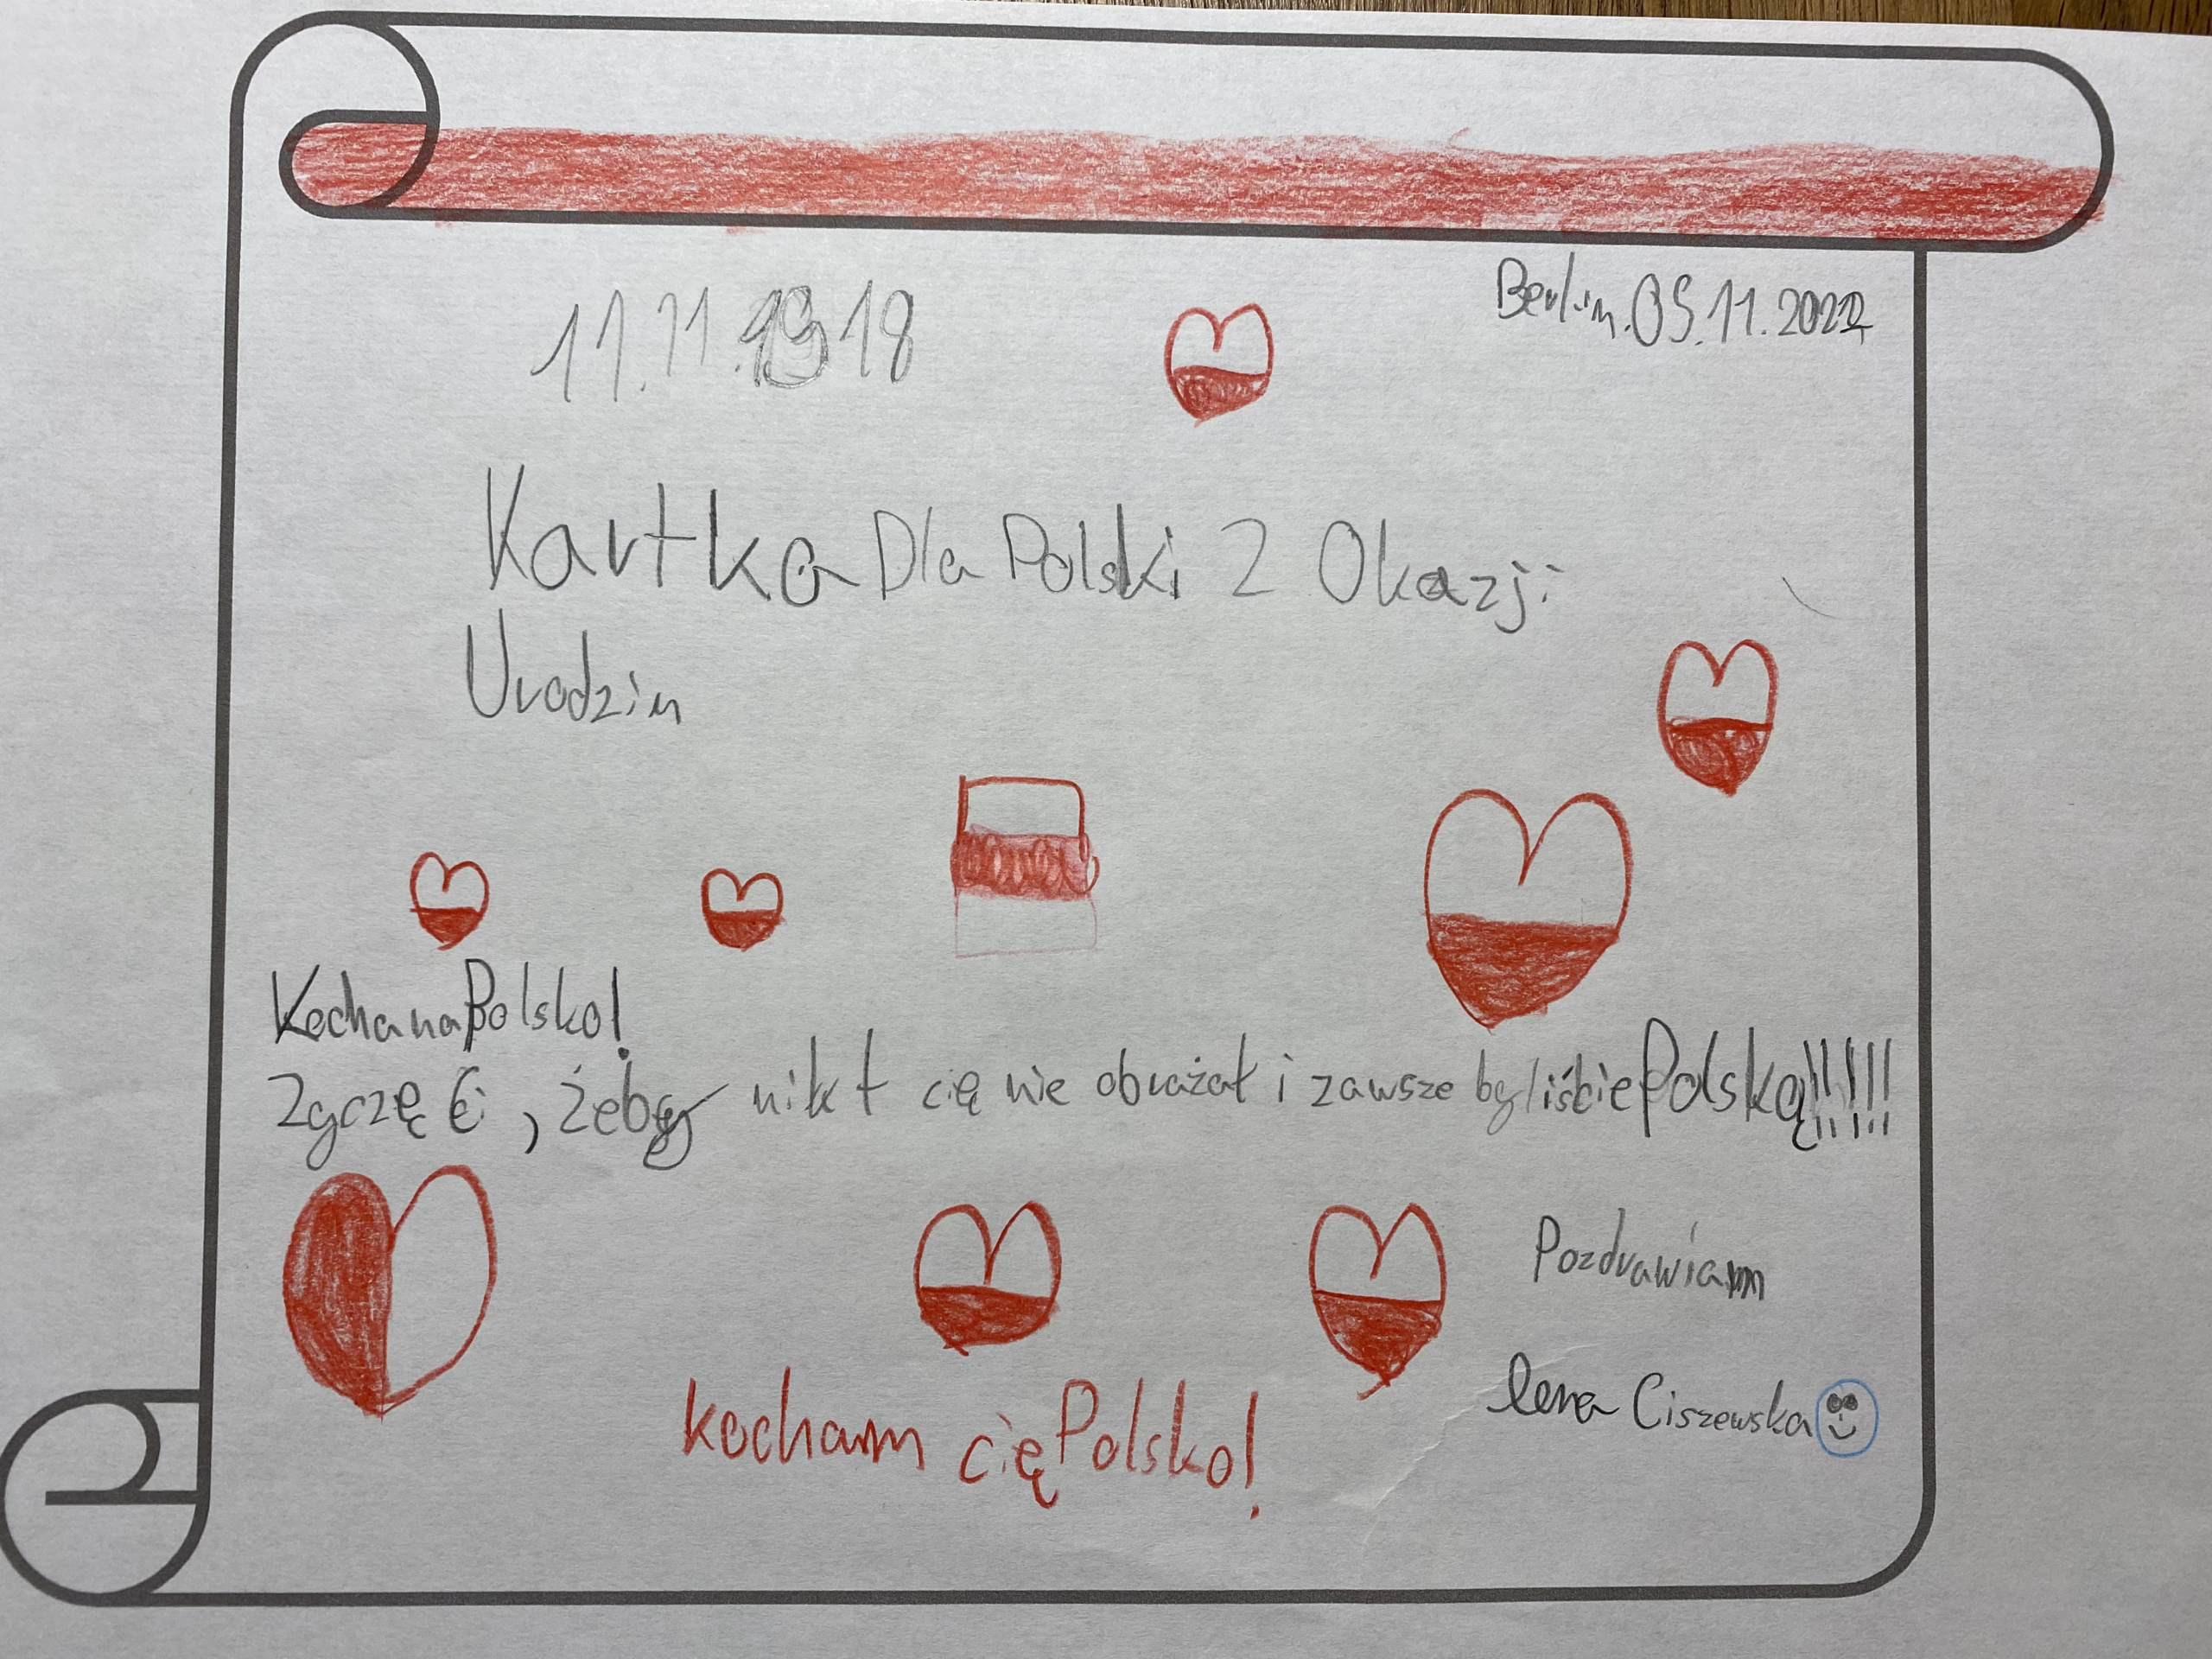 11.11.1918
Berlin.05.11.2022
Kartka Dla Polski Z Okazji
Urodzin
Kochana Polsko!
Zyczę Ci, żeby nikt cię nie obrażał i zawsze byliście Polską!!!!!!
Pozdrawiam
lena Ciszewska
kocham cię Polsko!